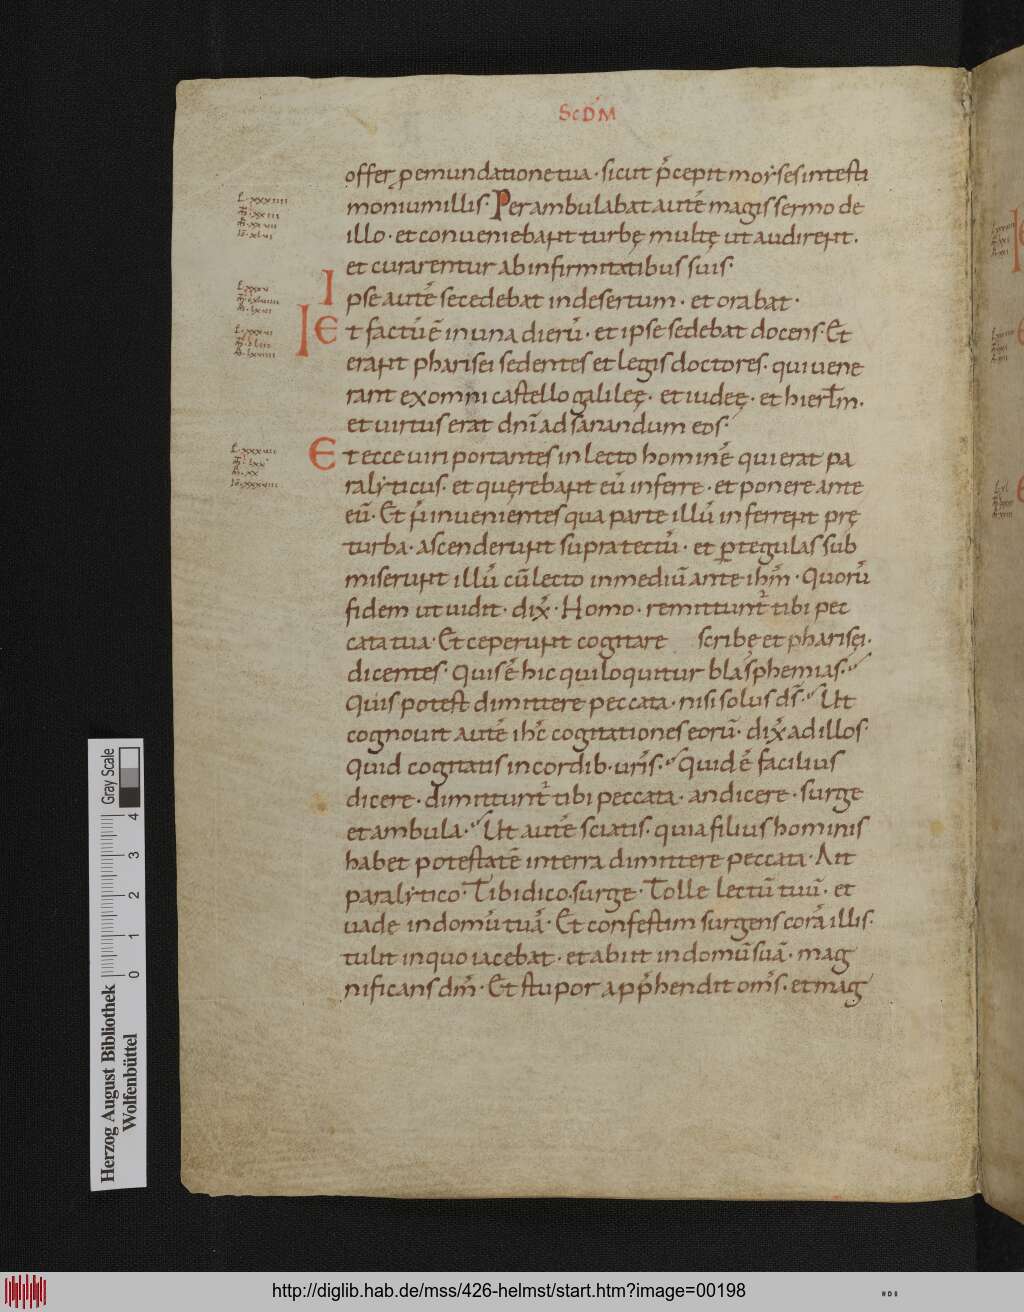 ScDM
offer ꝑ emundatione tua · sicut p̄cepit moyses in testi
monium illis · Per ambulabat autē magis sermo de
illo · et conueniebant turbę multę ut audirent ·
et curarentur ab infirmitatibus suis ·
Ipse autē secedebat in desertum · et orabat ·
Et factū ē in una dierū · et ipse sedebat docens · Et
erant pharisei sedentes et legis doctores · qui uene
rant ex omni castello galileę · et iudeę · et hierlm̄ ·
et uirtus erat dn̄i ad sanandum eos ·
Et ecce uiri portantes in lecto hominē qui erat pa
ralyticus · et querebant eū inferre · et ponere ante
eū · Et n̄ inuenientes qua parte illū inferrent prę
turba · ascenderunt supra tectū · et ꝑ tegulas sub
miserunt illū cū lecto in mediū ante ihm̄ · Quorū
fidem ut uidit · dix̄ · Homo · remittunt᷑ tibi pec
cata tua · Et ceperunt cogitare scribę et pharisęi ·
dicentes · Quis ē hic qui loquitur blasphemias ·
Quis potest dimittere peccata · nisi solus ds̄ · Ut
cognouit autē ihc̄ cogitationes eorū · dix̄ ad illos ·
Quid cogitatis in cordib · urīs · Quid ē facilius
dicere · dimittunt᷑ tibi peccata · an dicere · surge
et ambula · Ut autē sciatis · quia filius hominis
habet potestatē in terra dimittere peccata · Ait
paralytico · Tibi dico · surge · Tolle lectū tuū · et
uade in domū tuā · Et confestim surgens corā illis ·
tulit in quo iacebat · et abiit in domū suā · mag
nificans dm̄ · Et stupor app̄hendit om̄s · et mag
Gray Scale
0 1 2 3 4
Herzog August Bibliothek
Wolfenbüttel
http://diglib.hab.de/mss/426-helmst/start.htm?image=00198